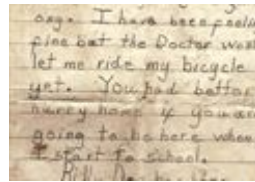 I have been feeling
fine but the Doctor wont
let me ride my bicycle
yet. You had better
hurry home if you are
going to be here when
I start to school.
Billy